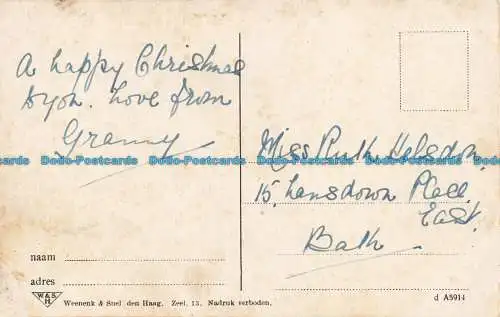 A happy Christmas
to you. Love from
Granny
Miss Ruth Helsdon,
15, Lansdown Place
East.
Bath
Dodo-Postcards Dodo-Postcards Dodo-Postcards Dodo-Postcards Dodo-Postcards
naam
adres
W&S
H
Weenenk & Snel den Haag. Zeel. 13. Nadruk verboden.
d A5914